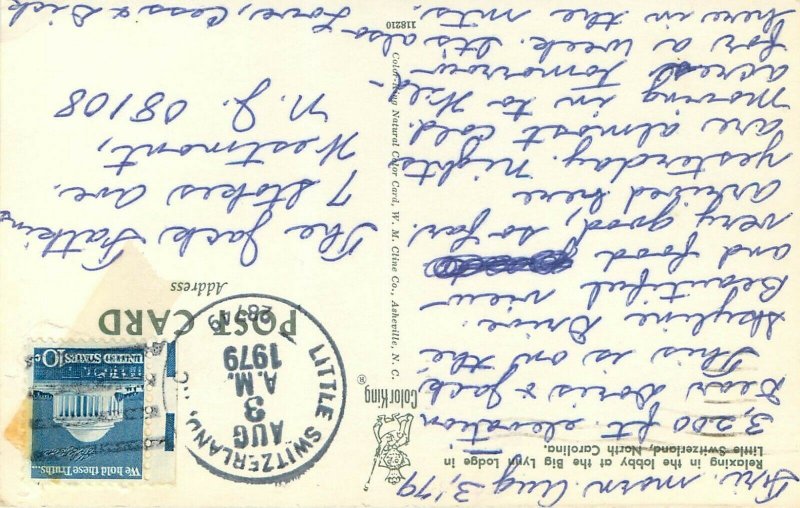 Fri. morn Aug 3, '79
Relaxing in the lobby at the Big Lynn Lodge in
Little Switzerland, North Carolina.
3,200 ft. elevation
Dear Doris & Jack
This is on the
Skyline Drive.
Beautiful view
and food
very good, so far.
arrived here
yesterday. Nights
are almost cold.
moving in to Hil-
acres tomorrow
for a week. Its also
here in the mts.
Love, Cass & Dick
ColorKing
®
Color-King Natural Color Card, W. M. Cline Co., Asheville, N. C.
118210
POST CARD
Address
LITTLE SWITZERLAND, NC
AUG
3
A.M.
1979
28749
We hold these Truths...
UNITED STATES
10c
The Jack Watkins
7 Stokes Ave.
Westmont,
N. J. 08108